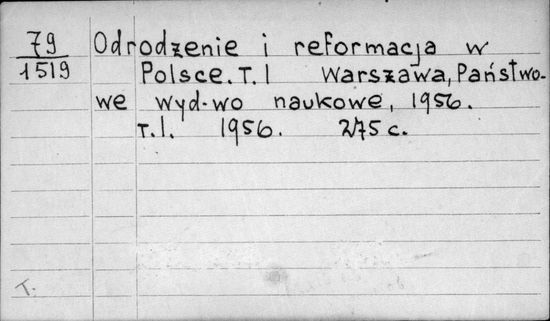 79 Odrodzenie i reformacja w
1519 Polsce. T. I Warszawa, Państwo-
we wyd-wo naukowe, 1956.
т. I. 1956. 275 с.
T.